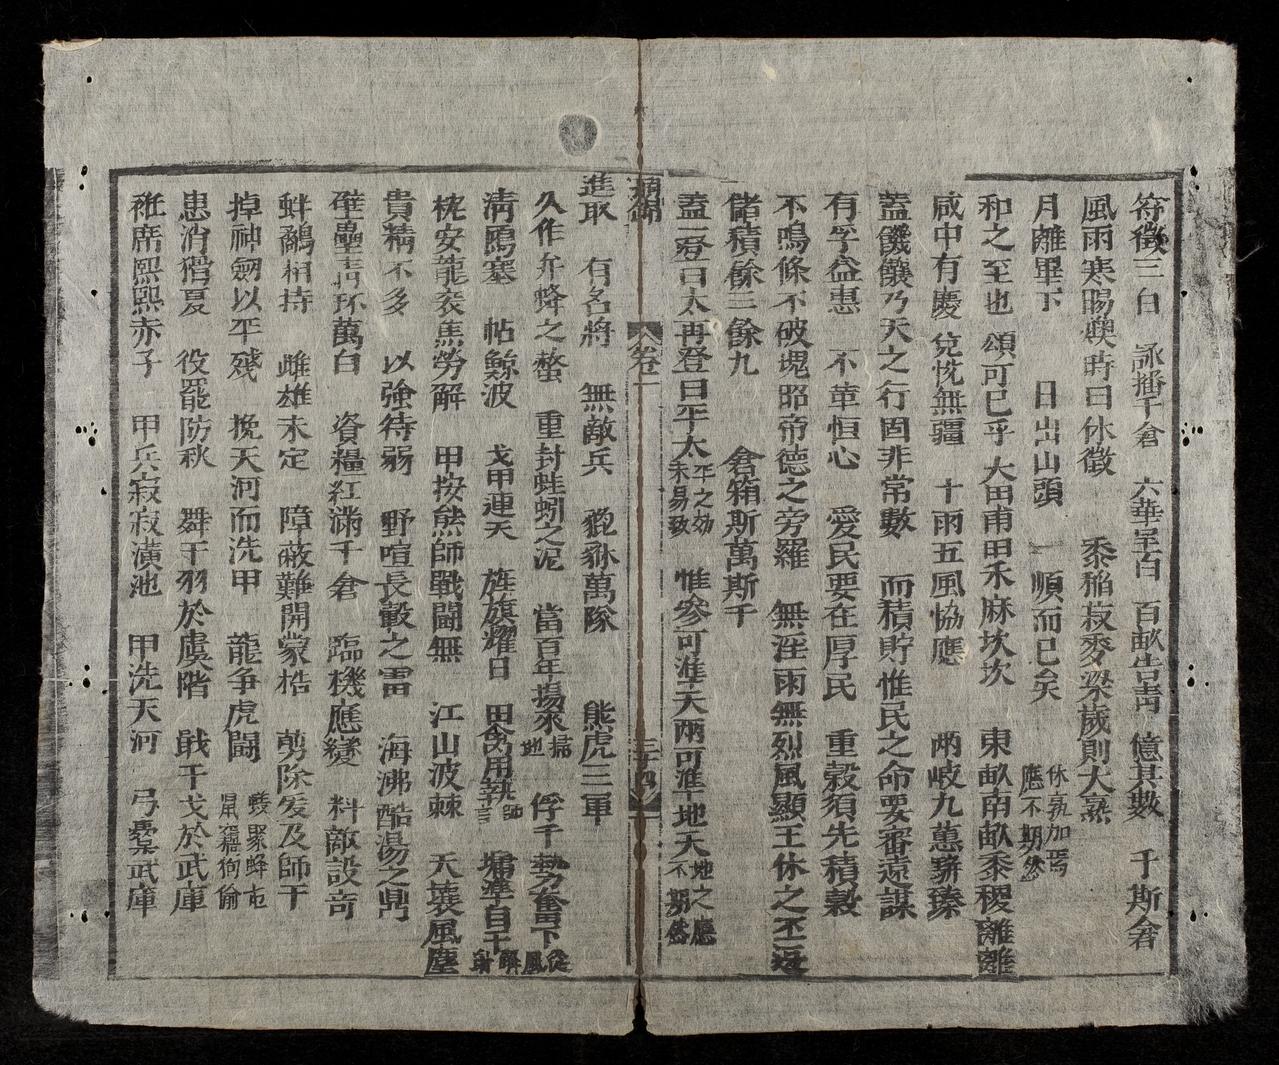 符徵三白 詠播千倉 六華呈白 百畝告靑 億其數 千斯倉
風雨寒暘燠時曰休徵 黍稲菽麥粱歲則大熟
月離畢下 日出山頭 一順而已矣 休孰加焉 應不期然
和之至也 頌可已乎 大田甫田禾麻坎坎 東畝南畝黍稷離離
咸中有慶 兌悅無疆 十雨五風恊應 兩岐九蕙駢臻
蓋饑饟乃天之行固非常數 而積貯惟民之命要審遠謀
有孚益惠 不革恒心 愛民要在厚民 重穀須先積穀
不鳴條不破塊昭帝德之旁羅 無淫雨無烈風顯王休之丕
儲積餘三餘九 倉箱斯萬斯千
蓋一登曰太再登曰平太 平之効 未易致 惟參可準天兩可準地天 地之應 不期然
卷一
進取 有名將 無敵兵 貔貅萬隊 熊虎三軍
久作弁蜂之螫 重封蛙蚓之泥 當百年揚來 掃地 俘千 下 從風
淸鴟塞 帖鯨波 戈甲連天 旌旗耀日 田禽用執 言 墉隼自千
枕安龍衮馬勞解 甲按熊師戰鬪無 江山波棘 天壤風塵
貴精不多 以強待弱 野喧長轂之雷 海沸酷湯之鼎
壁壘 萬白 資糧紅滿千倉 臨機應變 料敵設奇
蚌鷸相持 雌雄未定 障蔽難開蒙梏 剪除爰及師干
掉神劒以平殘 挽天河而洗甲 龍争虎鬪 蟻聚蜂屯 鼠竊狗偷
患消猾夏 役罷防秋 舞干羽於虞階 戢干戈於武庫
袵席熙熙赤子 甲兵寂寂潢池 甲洗天河 弓櫜武庫